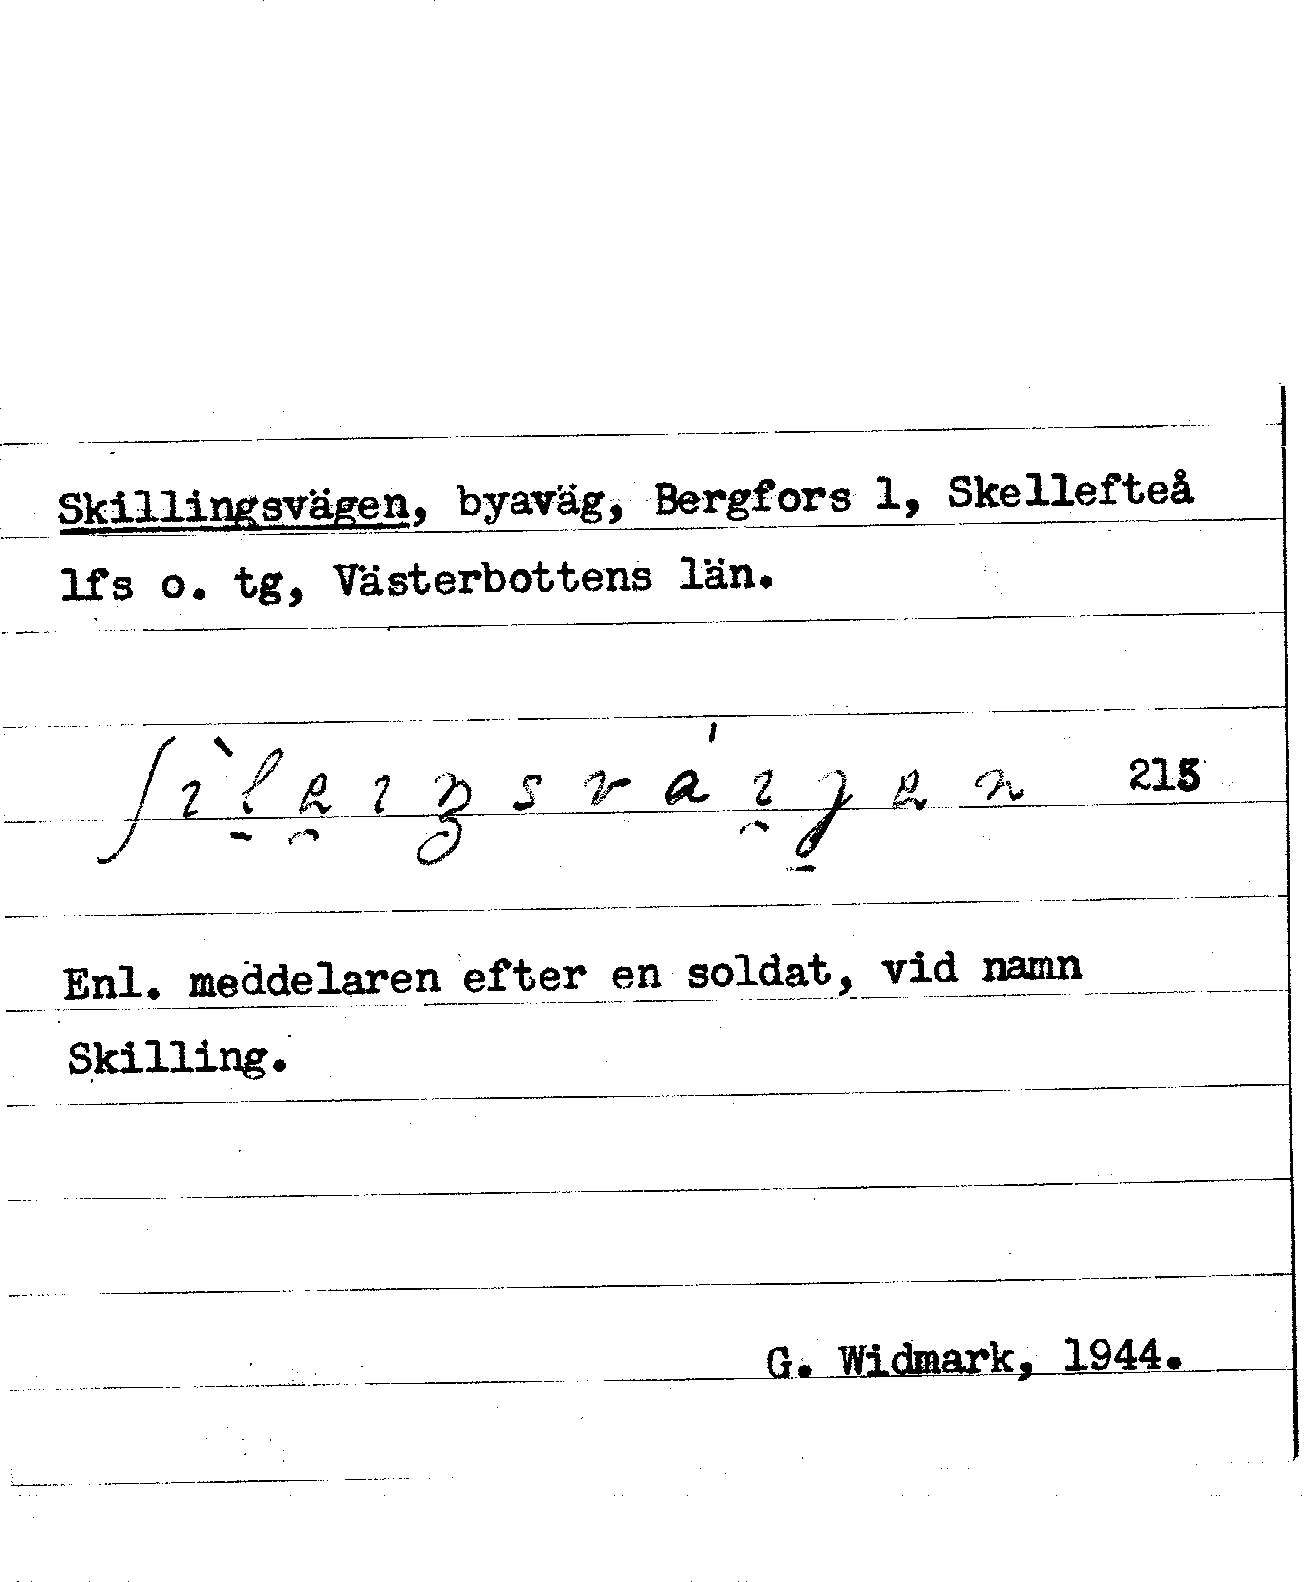 Skillingsvägen, byaväg, Bergfors 1, Skellefteå
lfs o. tg, Västerbottens län.
215
Enl. meddelaren efter en soldat, vid namn
Skilling.
G. Widmark, 1944.